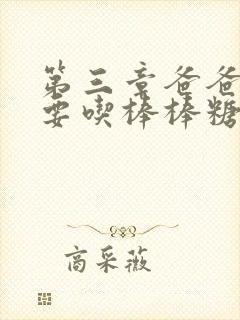 第三章爸爸
要喫棒棒糖
商采薇